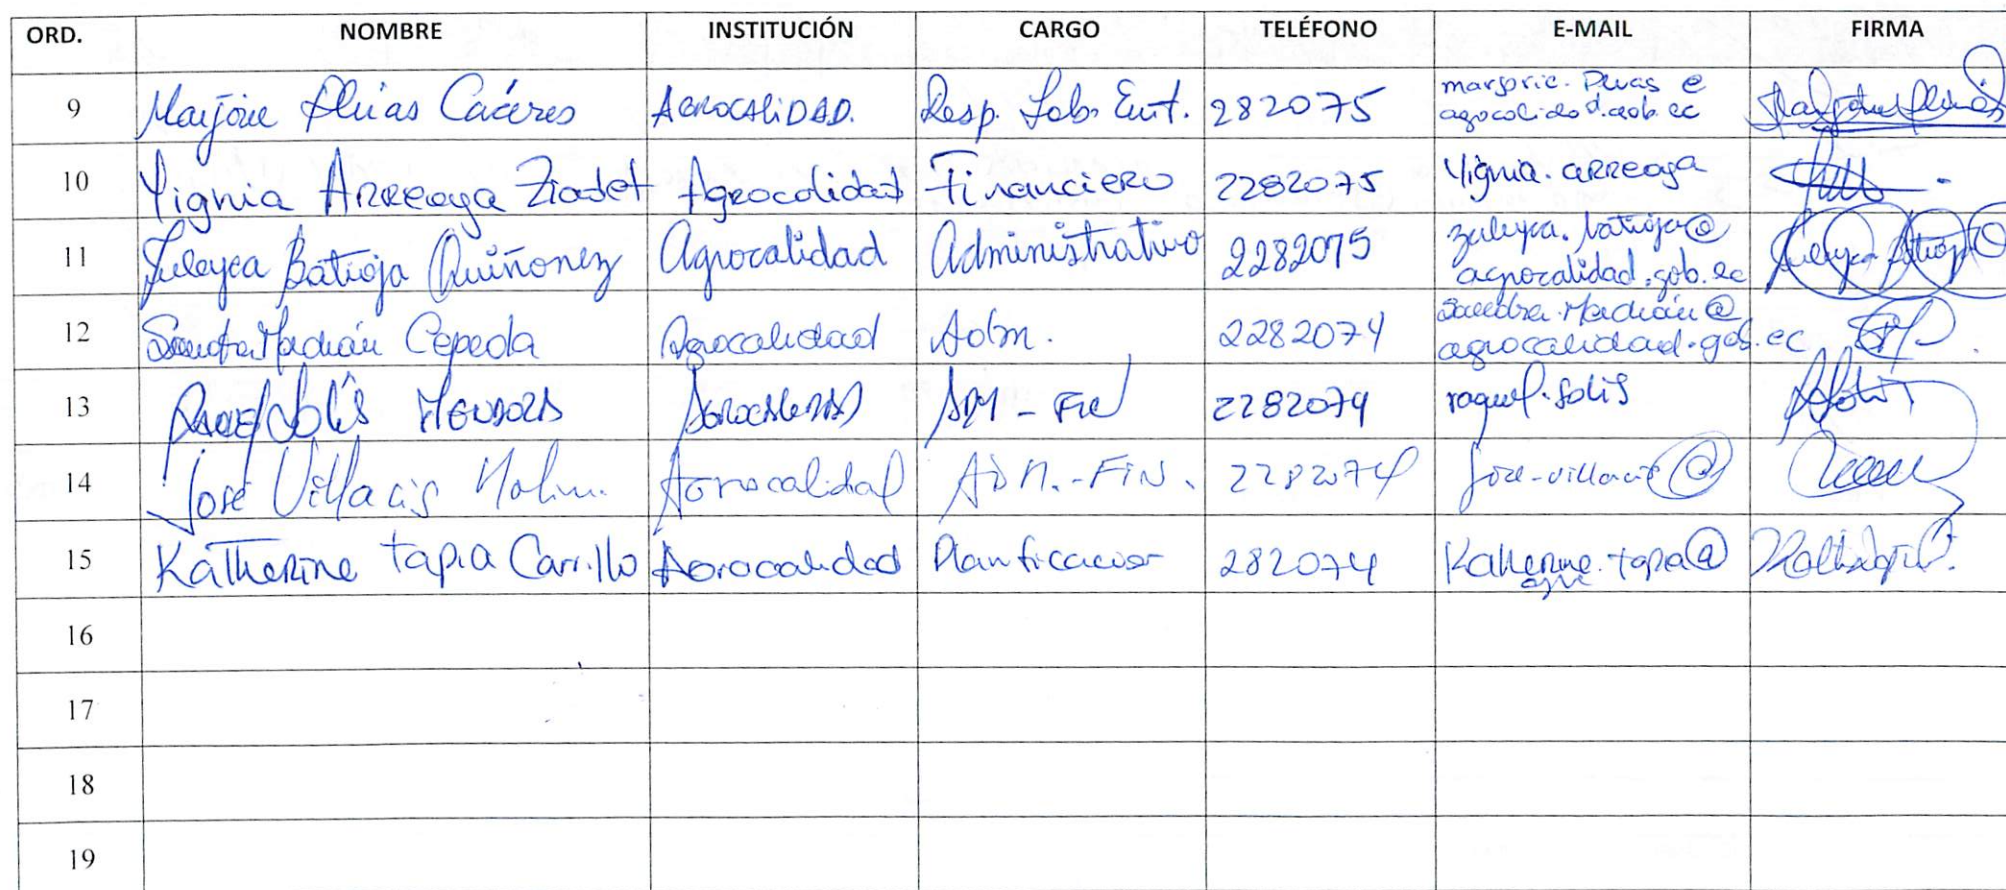 ORD. NOMBRE INSTITUCIÓN CARGO TELÉFONO E-MAIL FIRMA
9 Marjorie Pluas Cáceres AGROCALIDAD. Resp. Lab. Ent. 282075 marjorie.Pluas@
agrocalidad.gob.ec
10 Yignia Arreaga Ziadet Agrocalidad Financiero 2282075 Yignia.arreaga
11 Zuleyca Batioja Quiñonez Agrocalidad Administrativo 2282075 zuleyca.batioja@
agrocalidad.gob.ec
12 Sandra Machán Cepeda Agrocalidad Adm. 2282074 Sandra.Machán@
agrocalidad.gob.ec
13 Raquel Solís Mendoza Agrocalidad ADM - FIN 2282074 raquel.solis
14 José Villacis Molina Agrocalidad ADM.-FIN. 2282074 jose-villacis@
15 Katherine Tapia Carrillo Agrocalidad Planificacion 282074 Katherine.tapia@
16
17
18
19